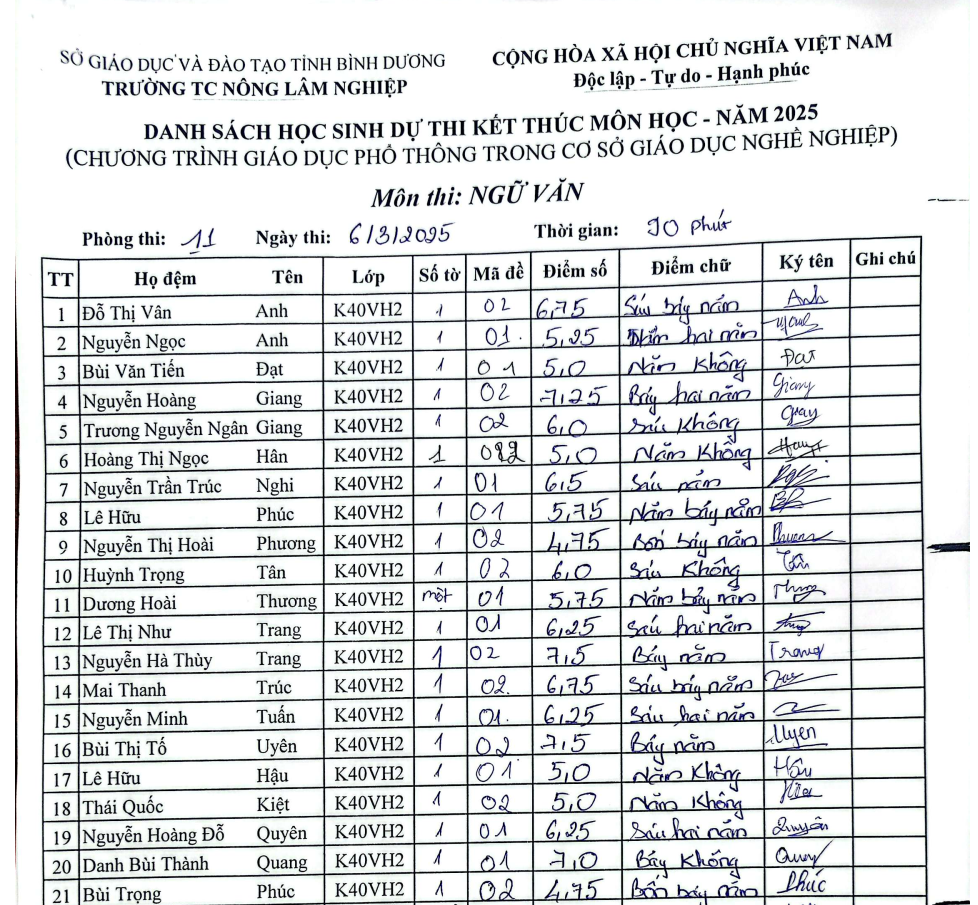 SỞ GIÁO DỤC VÀ ĐÀO TẠO TỈNH BÌNH DƯƠNG
TRƯỜNG TC NÔNG LÂM NGHIỆP
CỘNG HÒA XÃ HỘI CHỦ NGHĨA VIỆT NAM
Độc lập - Tự do - Hạnh phúc
DANH SÁCH HỌC SINH DỰ THI KẾT THÚC MÔN HỌC - NĂM 2025
(CHƯƠNG TRÌNH GIÁO DỤC PHỔ THÔNG TRONG CƠ SỞ GIÁO DỤC NGHỀ NGHIỆP)
Môn thi: NGỮ VĂN
Phòng thi: 11 Ngày thi: 6/3/2025 Thời gian: 90 phút
TT Họ đệm Tên Lớp Số tờ Mã đề Điểm số Điểm chữ Ký tên Ghi chú
1 Đỗ Thị Vân Anh K40VH2 1 02 6,75 Sáu bảy năm Anh
2 Nguyễn Ngọc Anh K40VH2 1 01. 5,25 Năm hai năm
3 Bùi Văn Tiến Đạt K40VH2 1 01 5,0 Năm không Đạt
4 Nguyễn Hoàng Giang K40VH2 1 02 7,25 Bảy hai năm Giang
5 Trương Nguyễn Ngân Giang K40VH2 1 02 6,0 Sáu không
6 Hoàng Thị Ngọc Hân K40VH2 1 02 5,0 Năm không
7 Nguyễn Trần Trúc Nghi K40VH2 1 01 6,5 Sáu năm
8 Lê Hữu Phúc K40VH2 1 01 5,75 Năm bảy năm
9 Nguyễn Thị Hoài Phương K40VH2 1 02 4,75 Bốn bảy năm Phương
10 Huỳnh Trọng Tân K40VH2 1 02 6,0 Sáu không Tân
11 Dương Hoài Thương K40VH2 một 01 5,75 Năm bảy năm
12 Lê Thị Như Trang K40VH2 1 01 6,25 Sáu hai năm
13 Nguyễn Hà Thùy Trang K40VH2 1 02 7,5 Bảy năm Trang
14 Mai Thanh Trúc K40VH2 1 02. 6,75 Sáu bảy năm
15 Nguyễn Minh Tuấn K40VH2 1 01. 6,25 Sáu hai năm
16 Bùi Thị Tố Uyên K40VH2 1 02 7,5 Bảy năm Uyen
17 Lê Hữu Hậu K40VH2 1 01 5,0 Năm không Hậu
18 Thái Quốc Kiệt K40VH2 1 02 5,0 Năm không
19 Nguyễn Hoàng Đỗ Quyên K40VH2 1 01 6,25 Sáu hai năm Quyên
20 Danh Bùi Thành Quang K40VH2 1 01 7,0 Bảy không Quang
21 Bùi Trọng Phúc K40VH2 1 02 4,75 Bốn bảy năm Phúc